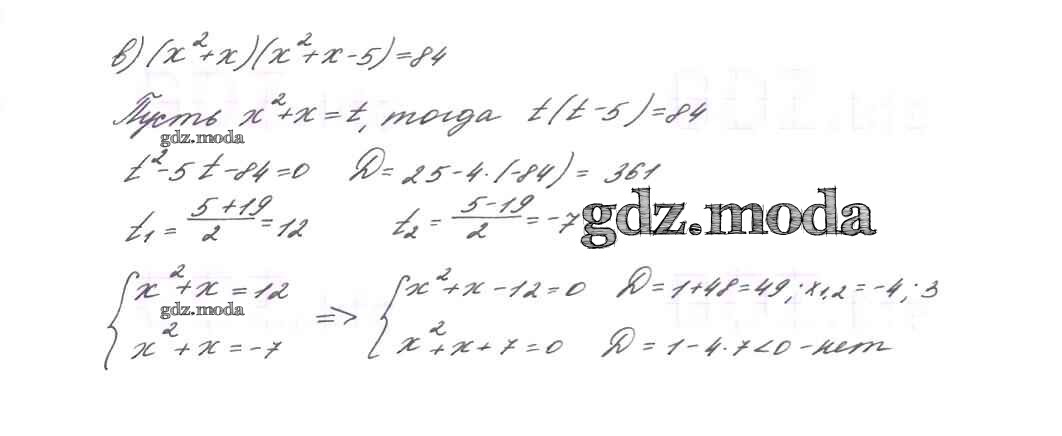 в) (x²+x)(x²+x-5)=84
Пусть x²+x=t, тогда t(t-5)=84
gdz.moda
t²-5t-84=0 D=25-4·(-84)= 361
t₁=(5+19)/2=12 t₂=(5-19)/2=-7
gdz.moda
{x²+x=12 => {x²+x-12=0 D=1+48=49; x₁,₂=-4; 3
gdz.moda
x²+x=-7 x²+x+7=0 D=1-4·7<0-нет